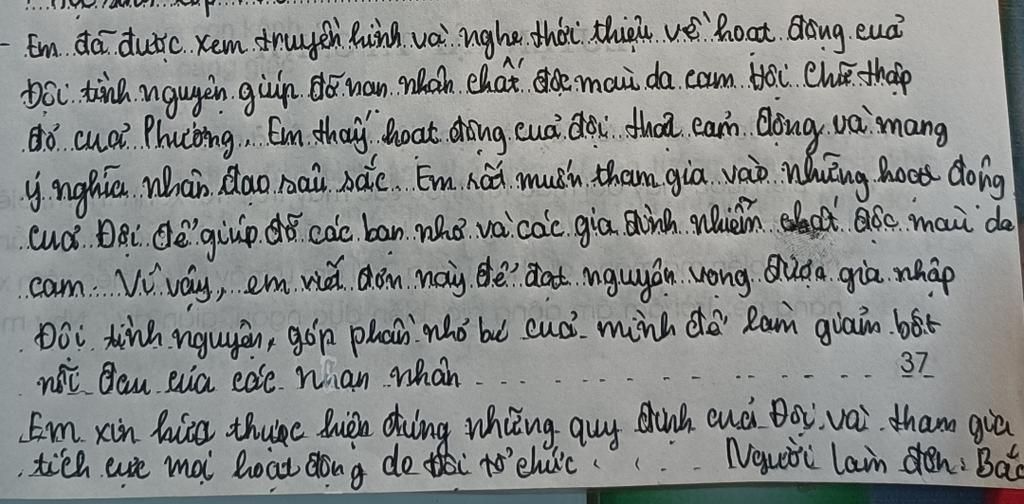 - Em đã được xem truyền hình và nghe thới thiệu về hoạt động của
Đội tình nguyện giúp đỡ nạn nhân chất độc màu da cam Hội Chữ thập
đỏ của Phường, Em thấy hoạt động của đội thật cảm động và mang
ý nghĩa nhân đạo sâu sắc. Em rất muốn tham gia vào những hoạt động
của Đội để giúp đỡ các bạn nhỏ và các gia đình nhiễm chất độc màu da
cam. Vì vậy, em viết đơn này để đạt nguyện vọng được gia nhập
Đội tình nguyện, góp phần nhỏ bé của mình để làm giảm bớt
nỗi đau của các nạn nhân 37
Em xin hứa thực hiện đúng những quy định của Đội và tham gia
tích cực mọi hoạt động do đội tổ chức. Người làm đơn: Bắc